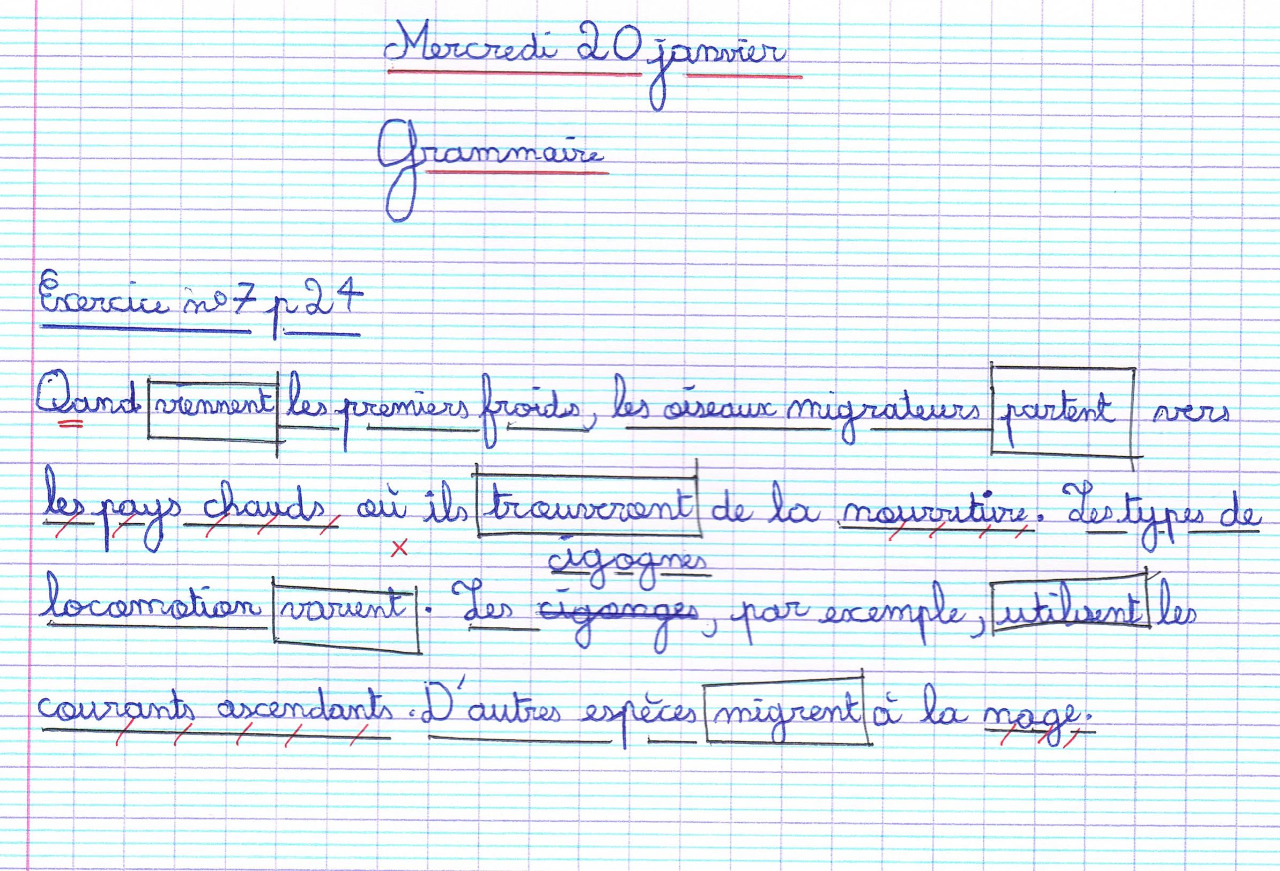 Mercredi 20 janvier
Grammaire
Exercice n°7 p 24
Qand viennent les premiers froids, les oiseaux migrateurs partent vers
les pays chauds, où ils trouveront de la nourritire. Les types de
cigognes
locomotion varient. Les cigonges, par exemple, utilisent les
courants ascendants. D'autres espèces migrent à la nage.